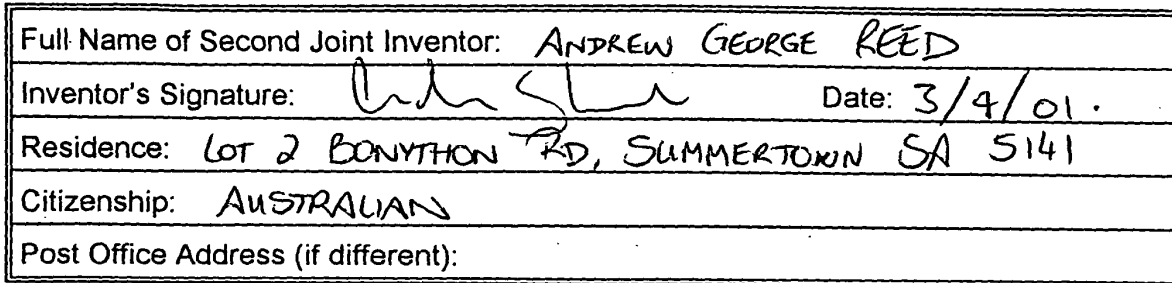 Full Name of Second Joint Inventor: ANDREW GEORGE REED
Inventor's Signature: Date: 3/4/01.
Residence: LOT 2 BONYTHON RD, SUMMERTOWN SA 5141
Citizenship: AUSTRALIAN
Post Office Address (if different):